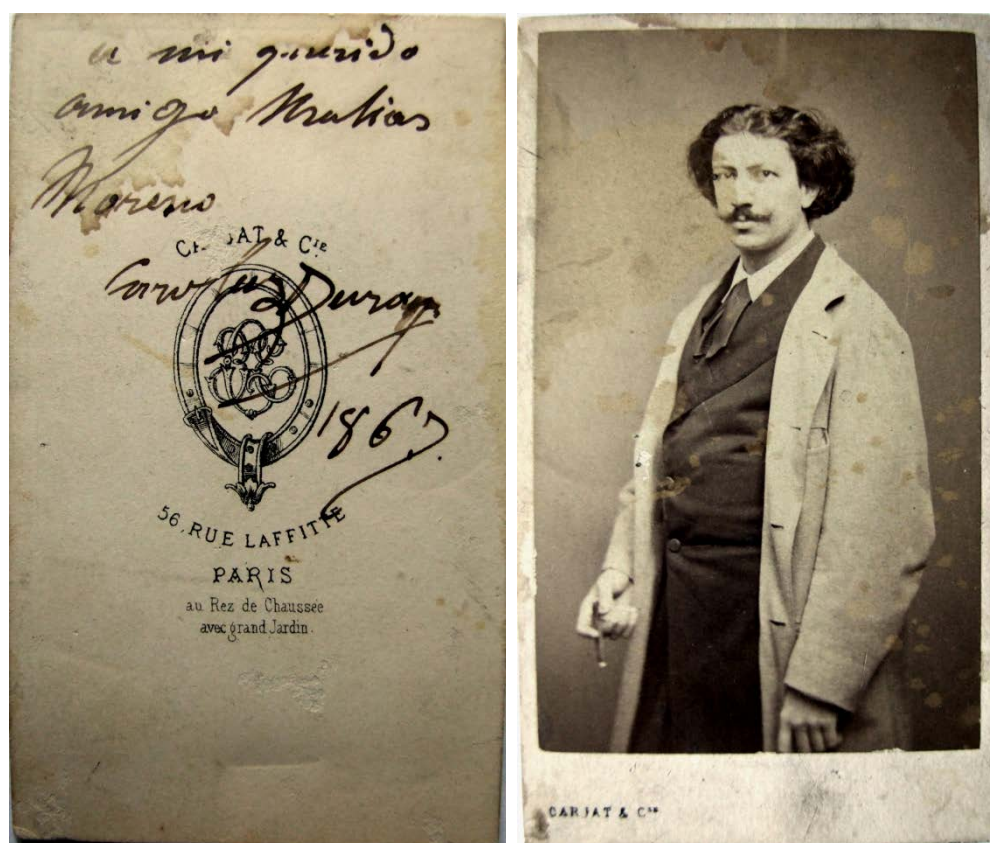 a mi querido
amigo Matias
Moreno
CARJAT & CIE
Carolus Duran
1867.
56, RUE LAFFITTE
PARIS
au Rez de Chaussée
avec grand Jardin.
CARJAT & CIE